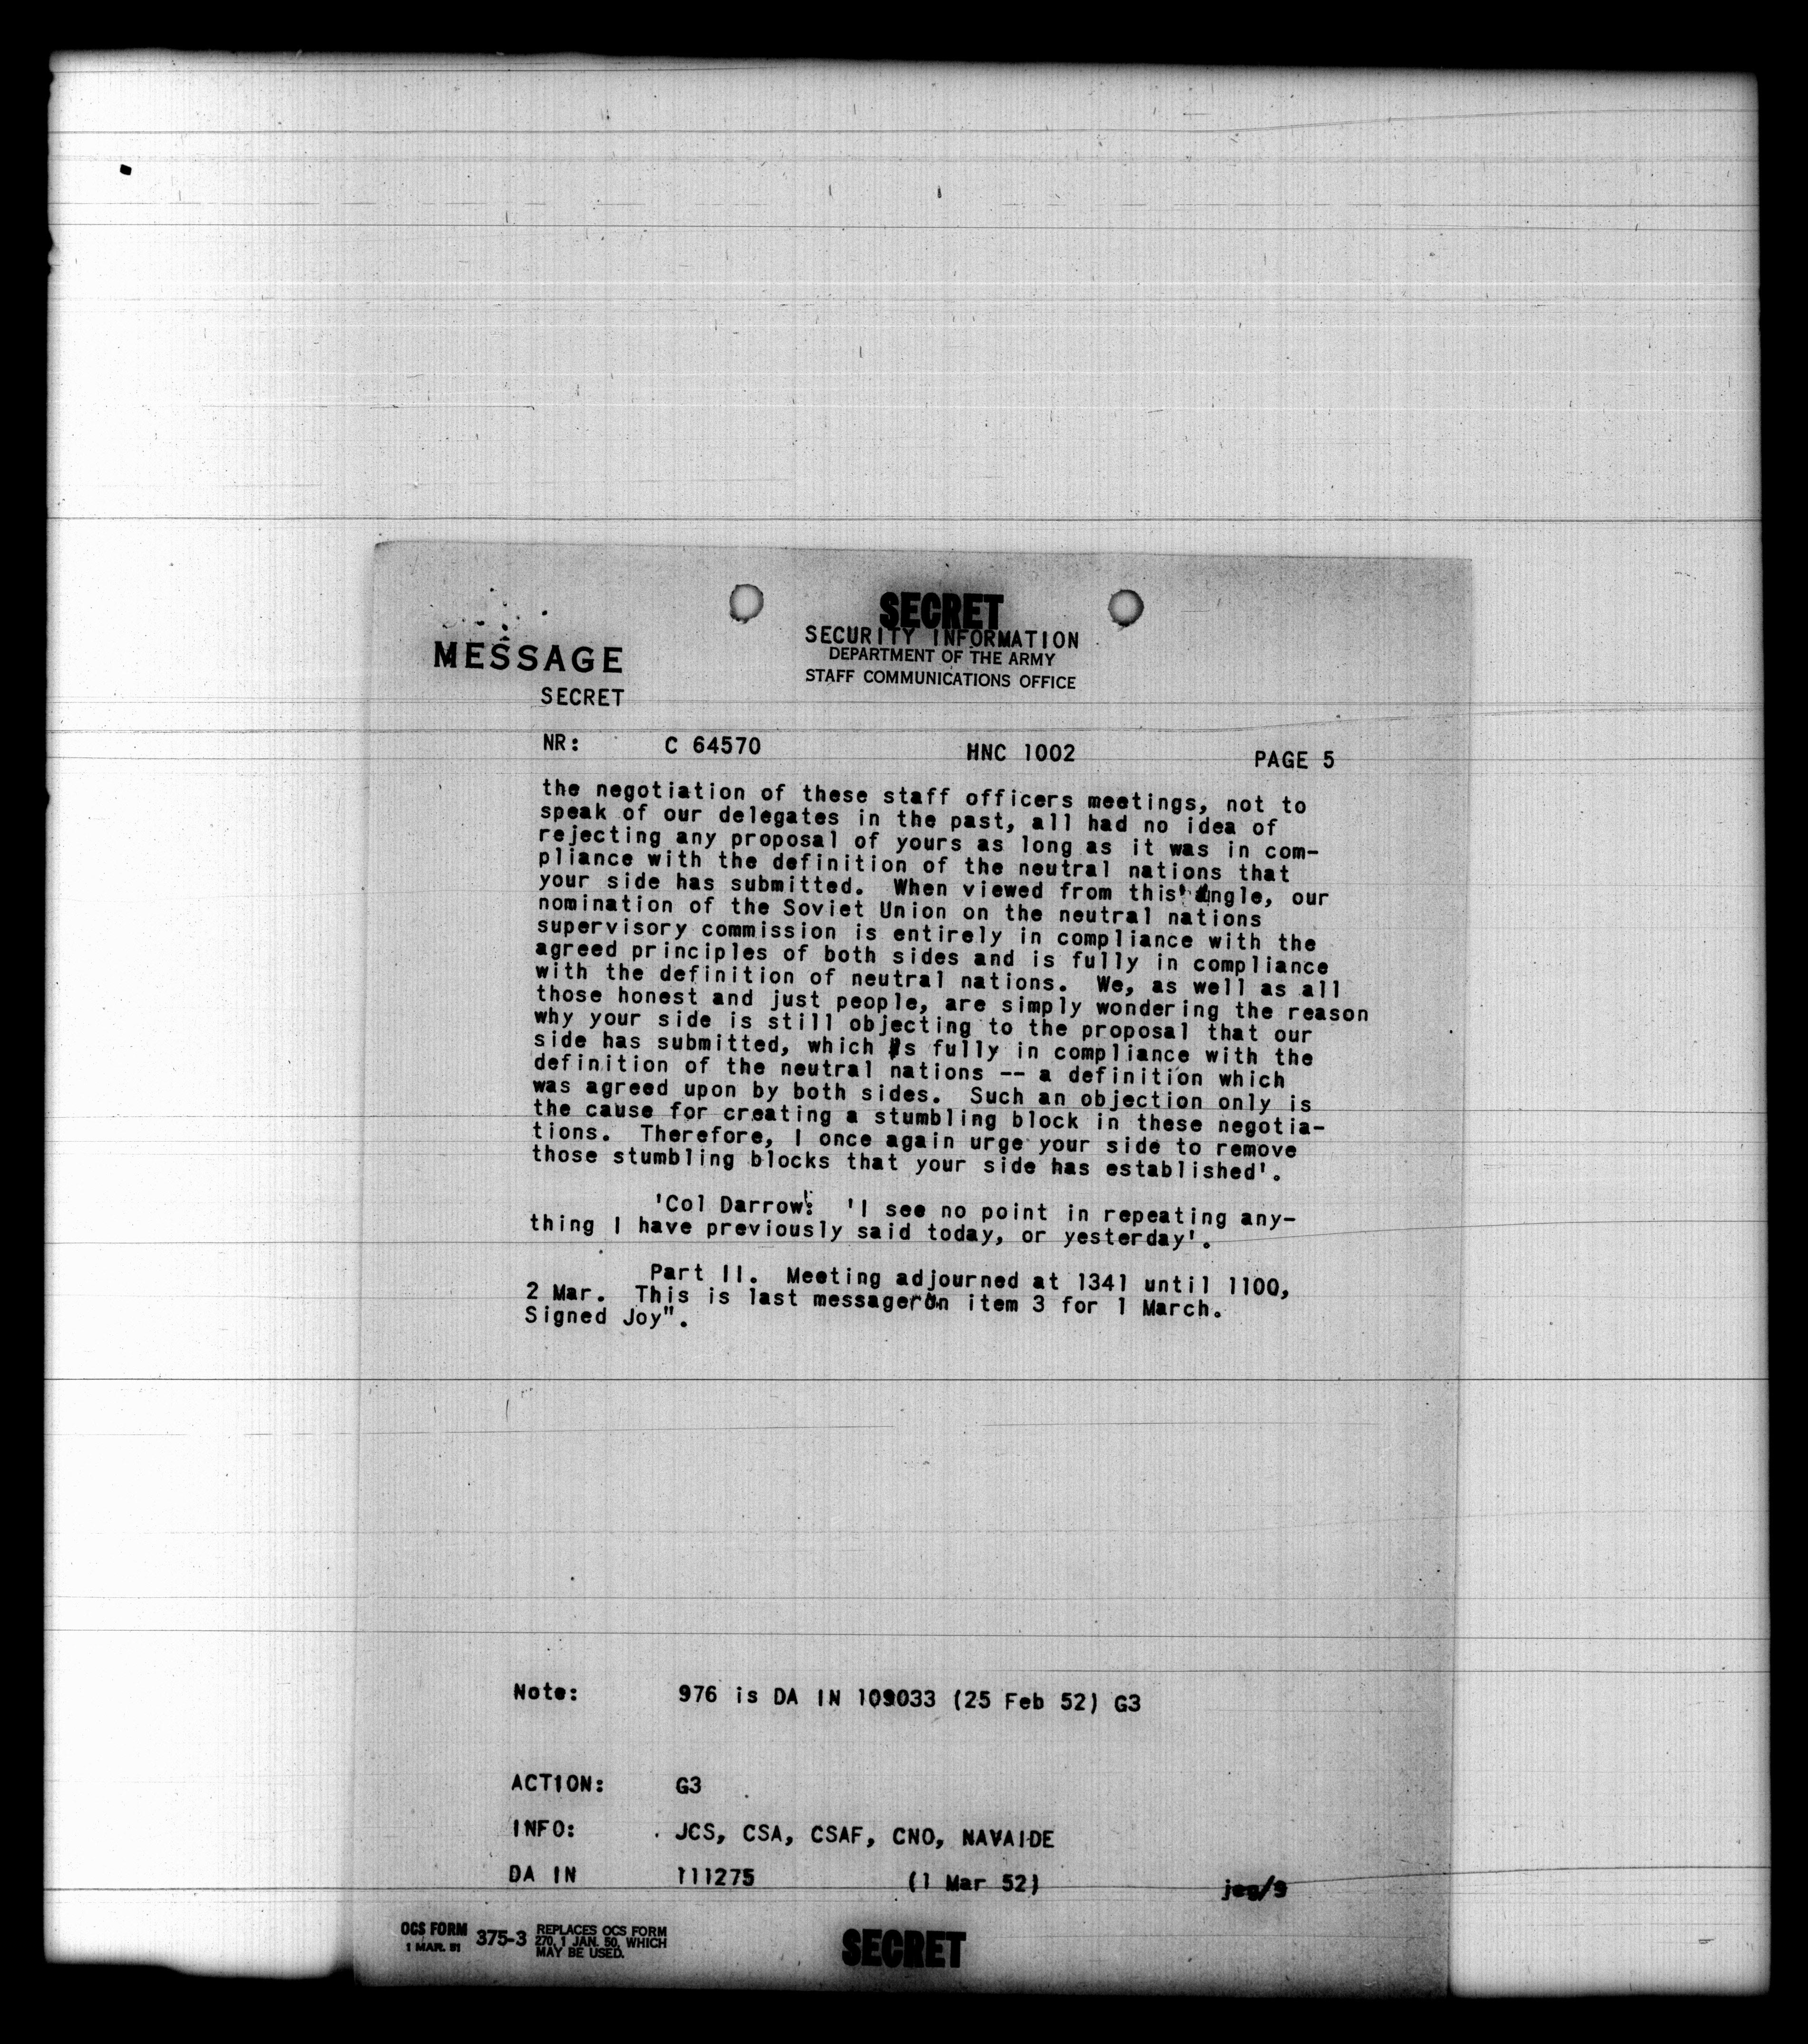 SECRET
SECURITY INFORMATION
MESSAGE
DEPARTMENT OF THE ARMY
STAFF COMMUNICATIONS OFFICE
SECRET
NR: C 64570 HNC 1002 PAGE 5
the negotiation of these staff officers meetings, not to
speak of our delegates in the past, all had no idea of
rejecting any proposal of yours as long as it was in com-
pliance with the definition of the neutral nations that
your side has submitted. When viewed from this angle, our
nomination of the Soviet Union on the neutral nations
supervisory commission is entirely in compliance with the
agreed principles of both sides and is fully in compliance
with the definition of neutral nations. We, as well as all
those honest and just people, are simply wondering the reason
why your side is still objecting to the proposal that our
side has submitted, which is fully in compliance with the
definition of the neutral nations -- a definition which
was agreed upon by both sides. Such an objection only is
the cause for creating a stumbling block in these negotia-
tions. Therefore, I once again urge your side to remove
those stumbling blocks that your side has established'.
'Col Darrow: 'I see no point in repeating any-
thing I have previously said today, or yesterday'.
Part II. Meeting adjourned at 1341 until 1100,
2 Mar. This is last message on item 3 for 1 March.
Signed Joy".
Note: 976 is DA IN 109033 (25 Feb 52) G3
ACTION: G3
INFO: JCS, CSA, CSAF, CNO, NAVAIDE
DA IN 111275 (1 Mar 52)
OCS FORM 375-3 REPLACES OCS FORM
1 MAR. 51 270, 1 JAN. 50, WHICH
MAY BE USED.
SECRET